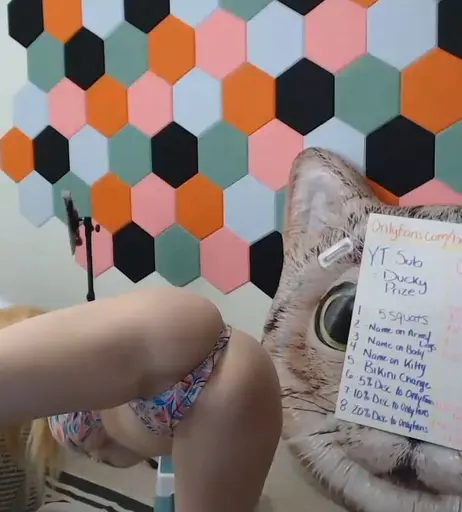 Onlyfans.com/
YT Sub
Ducky
Prize
1 5 Squats
2 Name on Arms/
Legs
3 Name on Body
4 Name on Kitty
5. Bikini Change
6. 5% Disc to Onlyfans
7. 10% Disc to Onlyfans
8. 20% Disc to Onlyfans